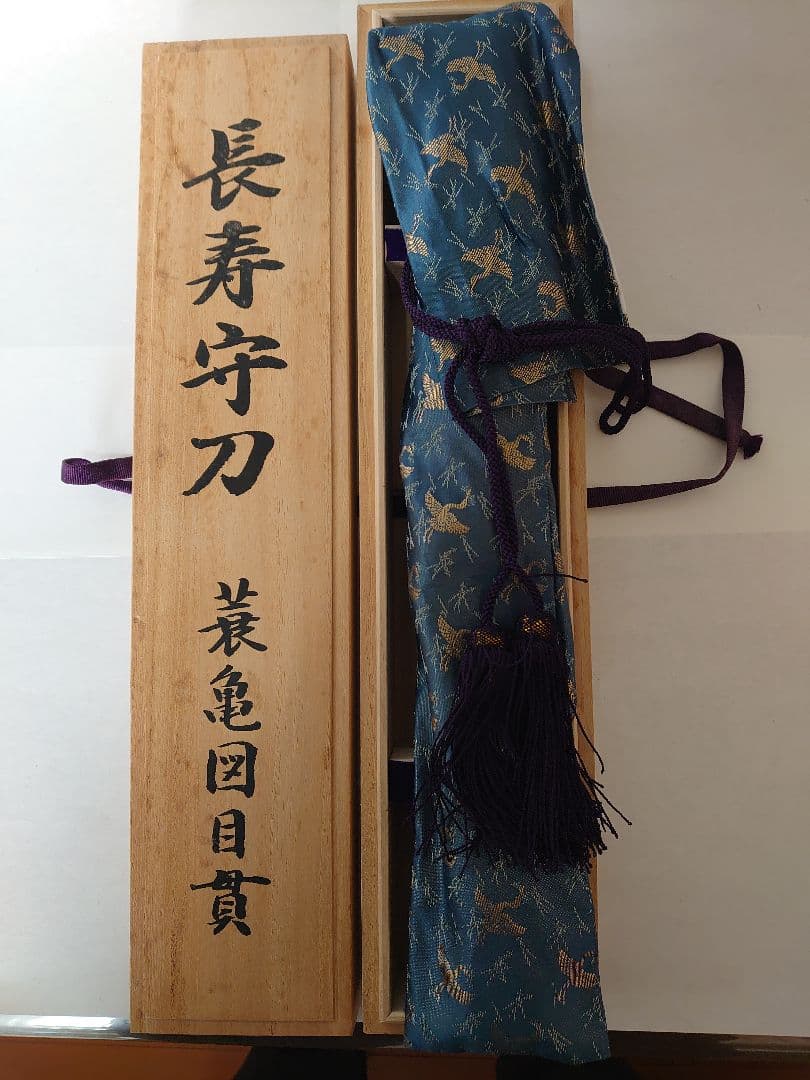 長寿守刀
蓑亀図目貫